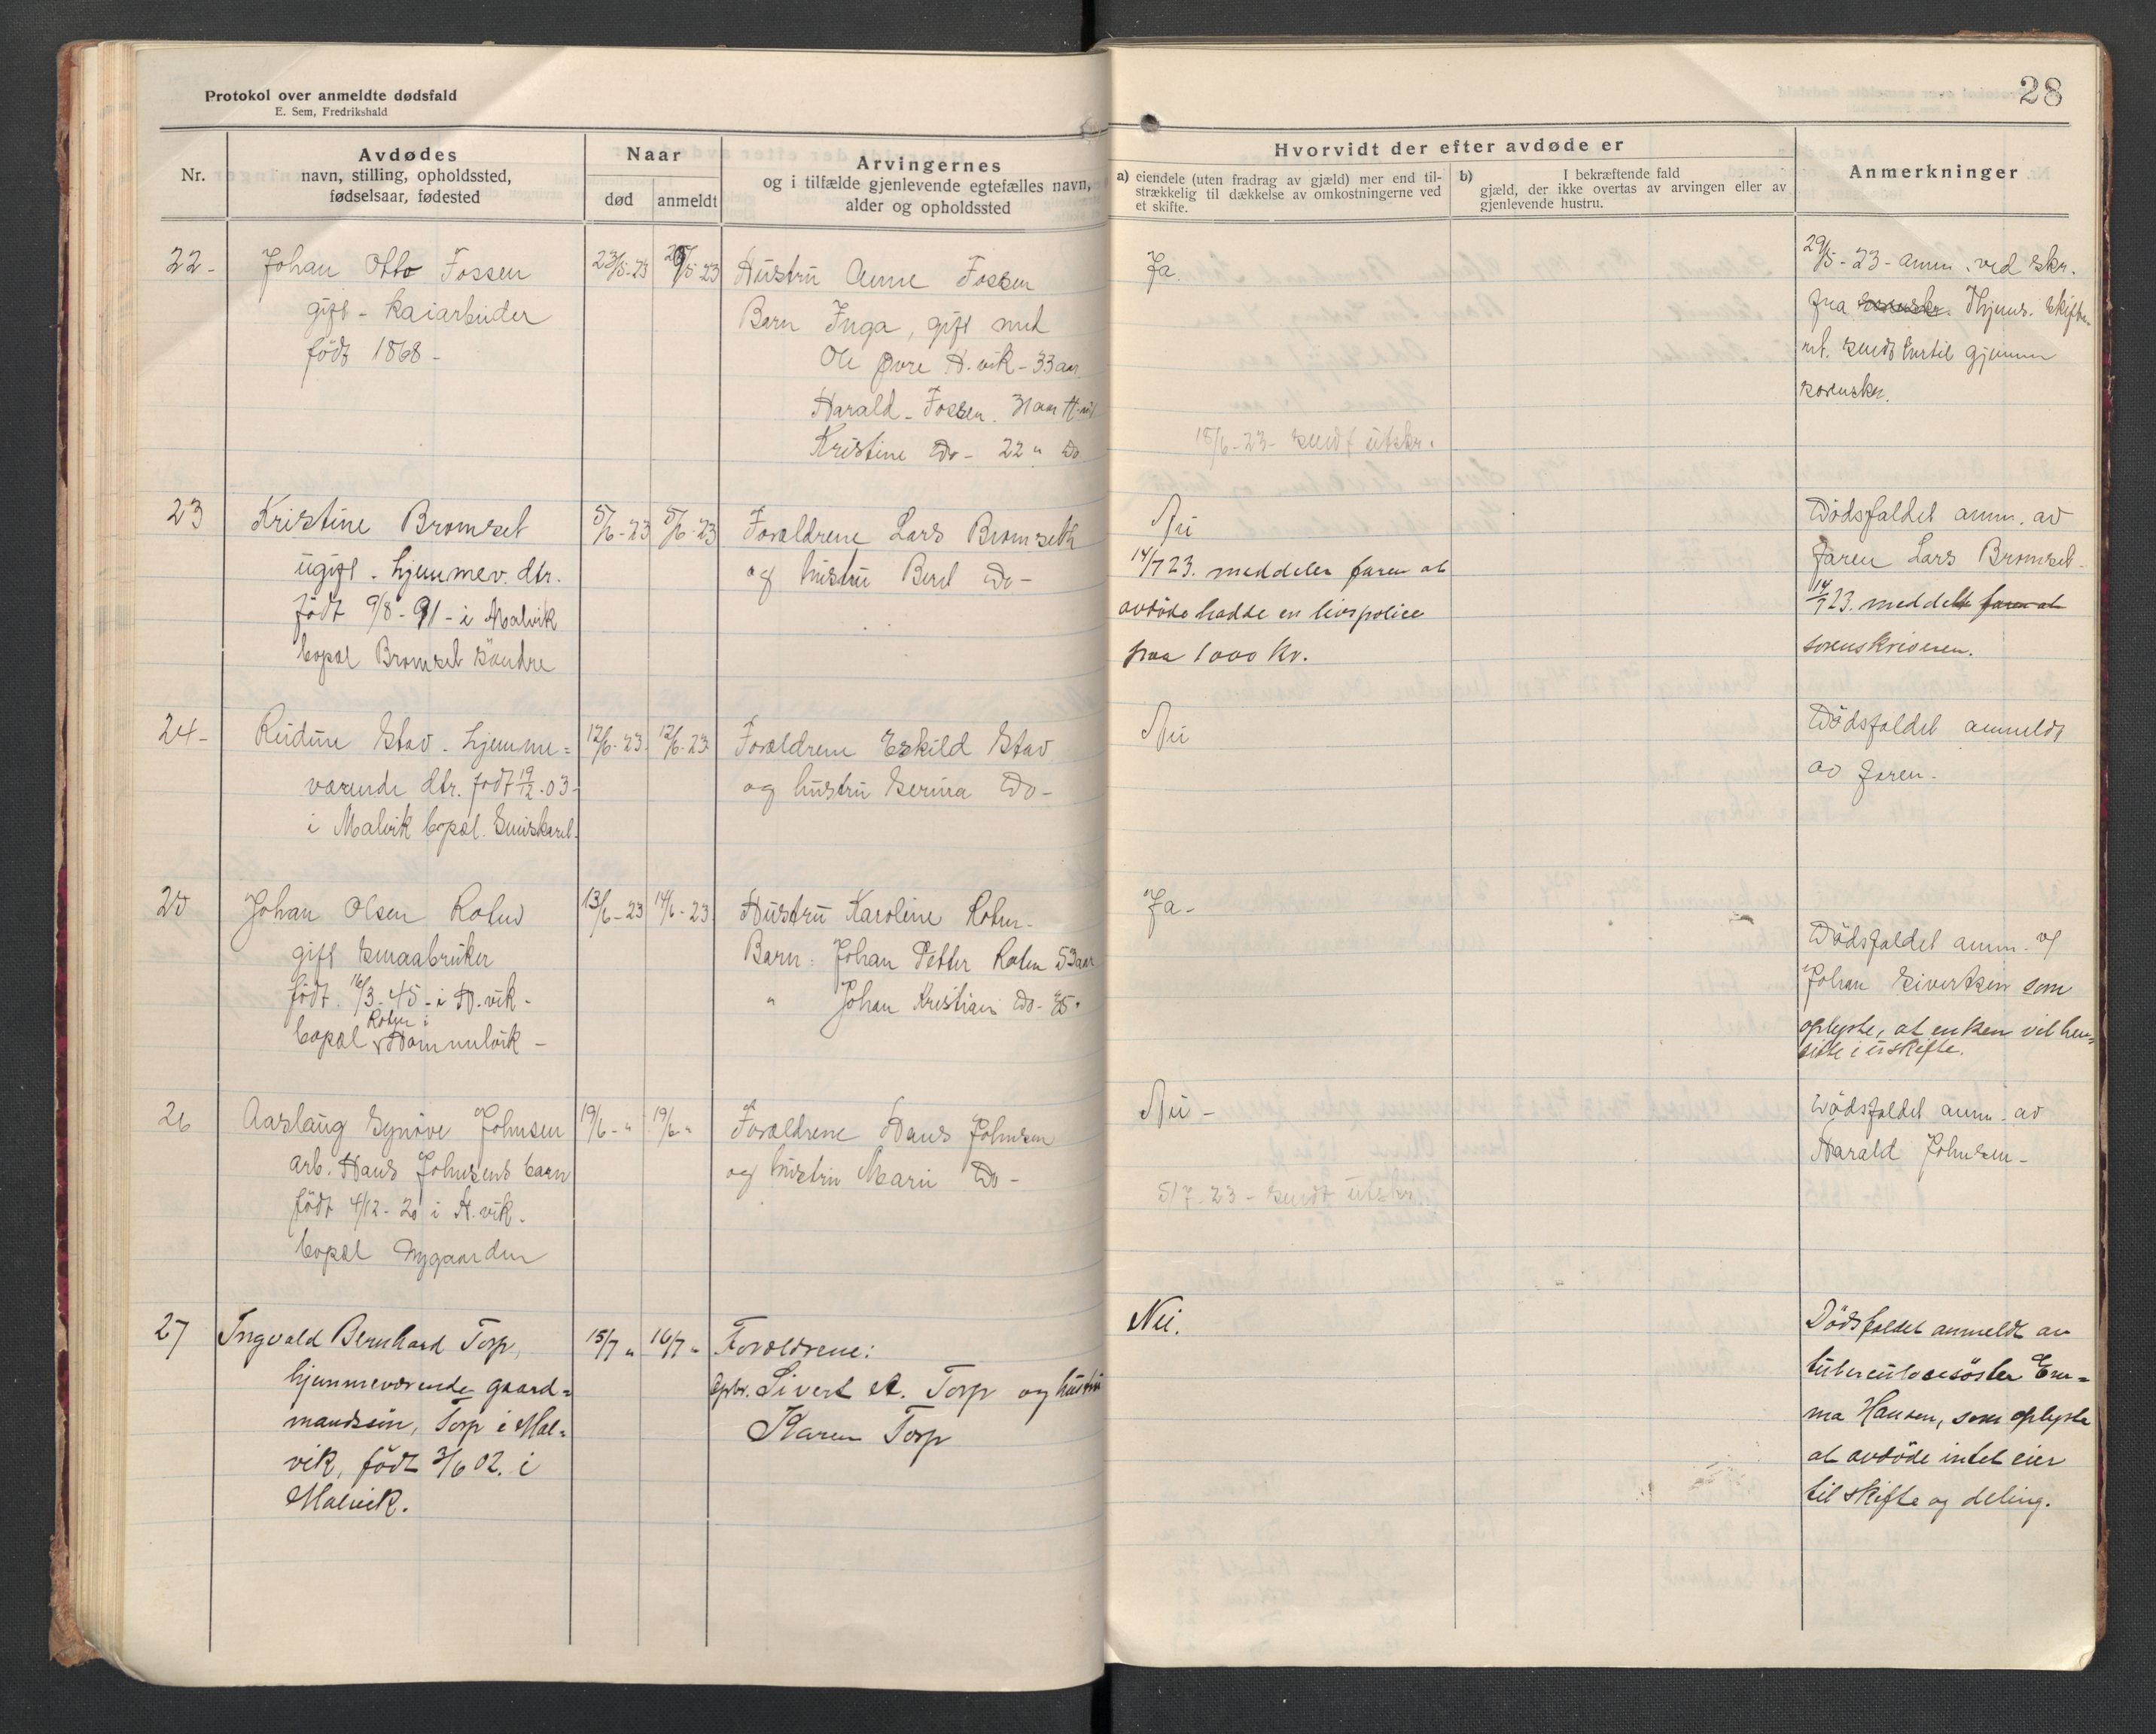 Protokol over anmeldte dødsfald
E. Sem, Fredrikshald
28
Nr.
Avdødes
navn, stilling, opholdssted,
fødselsaar, fødested
Naar
død
anmeldt
Arvingernes
og i tilfælde gjenlevende egtefælles navn,
alder og opholdssted
Hvorvidt der efter avdøde er
a) eiendele (uten fradrag av gjæld) mer end til-
strækkelig til dækkelse av omkostningerne ved
et skifte.
b) I bekræftende fald
gjæld, der ikke overtas av arvingen eller av
gjenlevende hustru.
Anmerkninger
22-
Johan Otto Fossen
gift - kaiarbeider
født 1868 -
23/5-23
/5-23
Hustru Anne Fossen
Barn Inga, gift med
Ole Øvre H.vik - 33 aar
Harald - Fossen. 31 aar H.vik
Kristine do - 22 " do
Ja
15/6-23- sendt utskr.
29/5-23- anm. ved skr.
fra Thjems. skifte-
ret. sendt hertil gjennem
sorenskr.
23
Kristine Bromset
ugift. hjemmev. dtr.
født 9/8-91- i Malvik
bopæl Bromset søndre
5/6-23
5/6-23
Forældrene Lars Bromseth
og hustru Beret do-
Nei
14/7 23. meddeler faren at
avdøde hadde en livspolice
paa 1000 kr.
Dødsfaldet anm. av
faren Lars Bromset.
14/7 23. meddelt faren at
sorenskriveren.
24-
Reidun Stav. hjemme=
værende dtr. født 19/12-03-
i Malvik bopæl.
12/6-23.
12/6-23
Forældrene Eskild Stav
og hustru Serina do-
Nei
Dødsfaldet anmeldt
av faren.
25
Johan Olsen Roten
gift smaabruker
født. 16/3-45- i H.vik-
Roten i
bopæl Hommelvik -
13/6-23
14/6-23
Hustru Karoline Roten-
Barn: Johan Petter Roten 53 aar
" Johan Kristian do- 35"
Ja-
Dødsfaldet anm. af
Johan Sivertsen som
oplyste, at enken vil hen=
sitte i uskifte.
26
Aaslaug Synøve Johnsen
arb. Hans Johnsens barn
født 4/12-20 i H.vik.
bopæl Nygaarden
19/6-"
19/6-"
Forældrene Hans Johnsen
og hustru Marie do-
Nei-
5/7-23- sendt utskr.
Dødsfaldet anm. av
Harald Johnsen-
27
Ingvald Bernhard Torp,
hjemmeværende gaard=
mandssøn, Torp i Mal=
vik, født 3/6 02. i
Malvik.
15/7 "
16/7 "
Forældrene:
Gpbr. Sivert A. Torp og hustru
Karen Torp
Nei.
Dødsfaldet anmeldt av
tuberculosesøster Em=
ma Hansen, som oplyste
at avdøde intet eier
til skifte og deling.